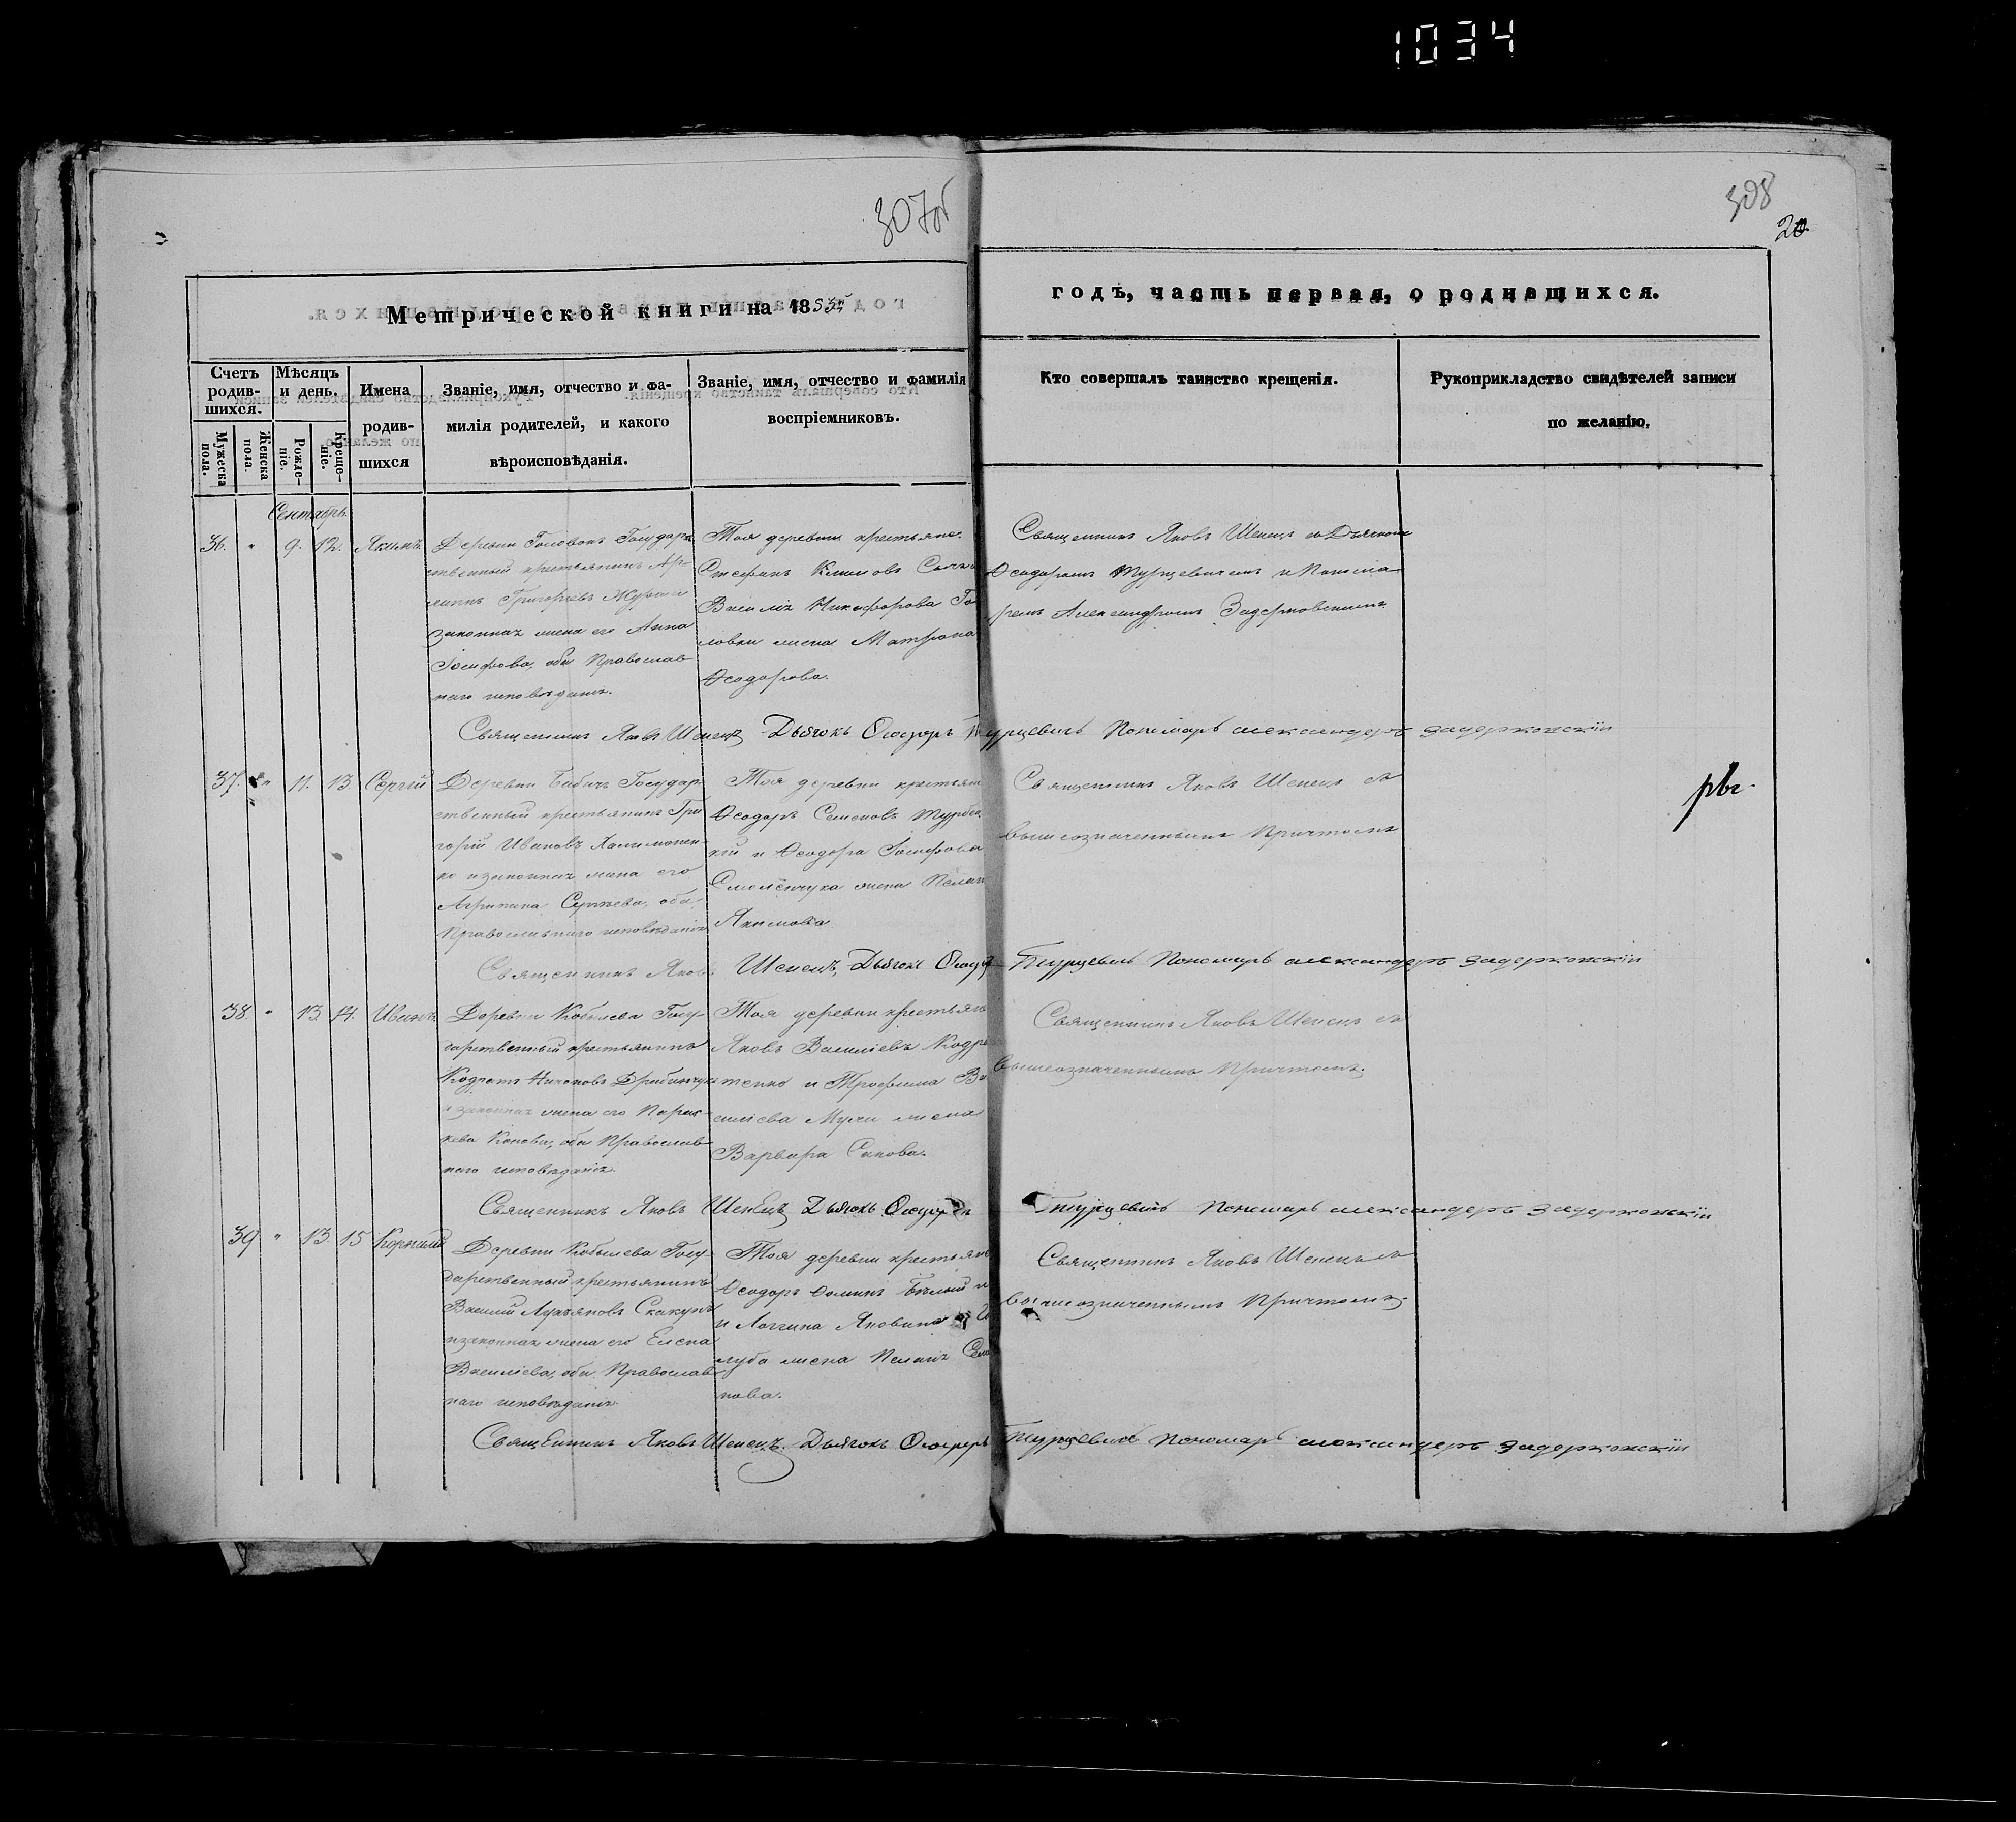 1034
307об
308
20
Метрической книги на 1855
годъ, часть первая, о родившихся.
Счетъ родив-шихся.
Мужеска пола.
Женска пола.
Мѣсяцъ и день.
Рожде-ніе.
Креще-ніе.
Имена родив-шихся
Званіе, имя, отчество и фа-
милія родителей, и какого
вѣроисповѣданія.
Званіе, имя, отчество и фамилія
воспріемниковъ.
Кто совершалъ таинство крещенія.
Рукоприкладство свидѣтелей записи
по желанію.
Сентябрь
36. " 9. 12. Якимъ
Деревни Головокъ Государ-
ственный крестьянинъ
Григорьевъ
законная жена его Анна
Іосифова, оба Православ-
наго исповѣданія.
Тоя деревни крестьяне
Стефанъ Климовъ
Василія Никифорова Го
ловки жена Матрона
Ѳеодорова.
Священникъ Яковъ Шенецъ съ Дьячкомъ
Ѳеодоромъ Турцевичемъ и Понома-
ремъ Александромъ Задерковскимъ
Священникъ Яковъ Шенецъ Дьячокъ Ѳеодоръ Турцевичъ Пономарь александеръ задерковскій
37. " 11. 13 Сергій
Деревни Бабичъ Государ-
ственный крестьянинъ Гри
горій Ивановъ
ко и законная жена его
Агрипина Сергѣева, оба
Православнаго исповѣданія
Тоя деревни крестьян
Ѳеодоръ Семеновъ
кій и Ѳеодора Іосифова
Смоленчука жена Пелаг
Якимова
Священникъ Яковъ Шенецъ съ
вышеозначеннымъ Причтомъ
Священникъ Яковъ Шенецъ, Дьячокъ Ѳеодоръ Турцевичъ Пономарь александеръ задерковскій
38. " 13. 14. Иванъ
Деревни Кобылева Госу-
дарственный крестьянинъ
Кодратъ
и законная жена его Парас-
кева Конова, оба Православ-
наго исповѣданія.
Тоя деревни крестьян
Яковъ Василіевъ Кодра
тенко и Трофима Ва
силіева жена
Варвара Савова.
Священникъ Яковъ Шенецъ съ
вышеозначеннымъ Причтомъ.
Священникъ Яковъ Шенецъ Дьячокъ Ѳеодоръ Турцевичъ Пономарь александеръ задерковскій
39 " 13. 15 Корнилій
Деревни Кобылева Госу-
дарственный крестьянинъ
Василій Лукьяновъ Скакунъ
и законная жена его Елена
Василіева, оба Православ-
наго исповѣданія
Тоя деревни крестьяне
Ѳеодоръ Ѳоминъ Бѣлый и
и Логгина Яковина
луба жена Пелагія Семе
нова.
Священникъ Яковъ Шенецъ съ
вышеозначеннымъ Причтомъ.
Священникъ Яковъ Шенецъ. Дьячокъ Ѳеодоръ Турцевичъ Пономарь александеръ задерковскій